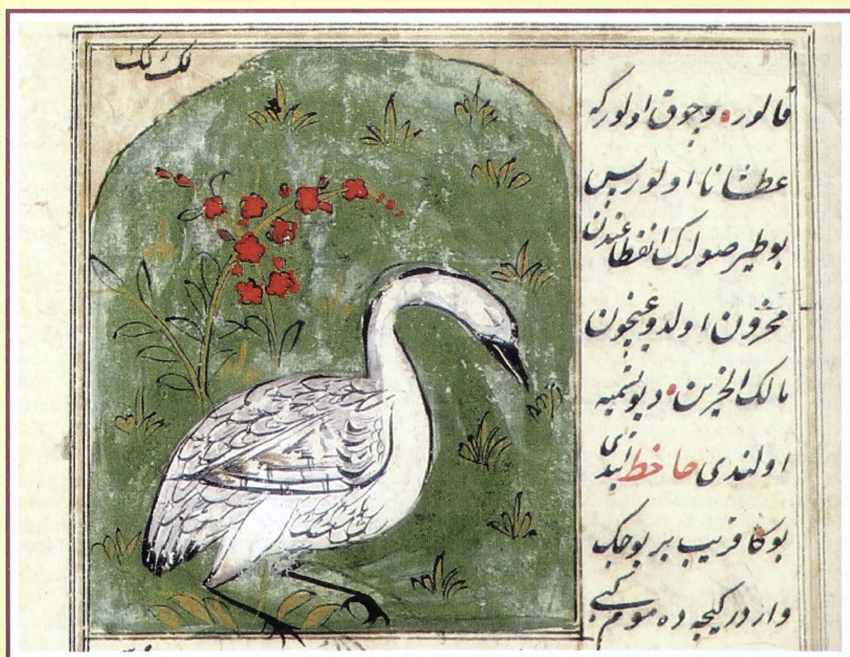 لك لك
قالور وچوق اولور كه
عطشانا اولور پس
بو طير صولرك انقطاعندن
محزون اولدوغيچون
مالك الحزين ديو تسميه
اولندى حاحظ ايتدى
بوكا قريب بر بوجك
واردر كيجه ده موم كبى